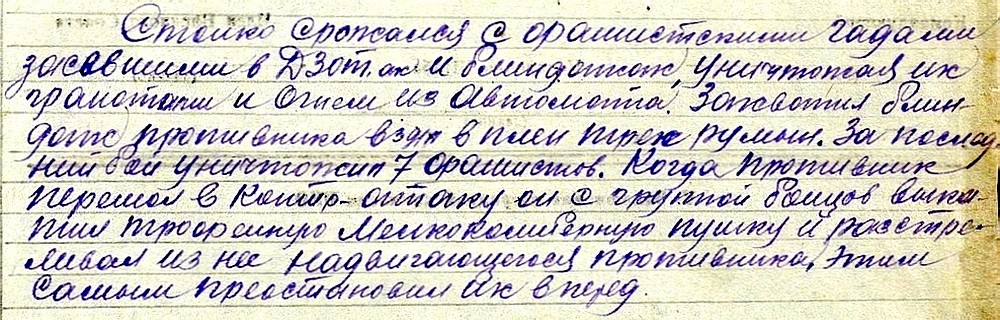 Стойко сражался с фашистскими гадами
засевшими в Дзотах и блиндажах, уничтожая их
гранатами и огнем из автомата. Захватил блин-
даж противника взял в плен трех румын. За послед-
ний бой уничтожил 7 фашистов. Когда противник
перешол в контр-атаку он с группой бойцов выка-
тил трофейную мелкокалиберную пушку и расстре-
ливал из нее надвигающегося противника, этим
самым преостановил их вперед.